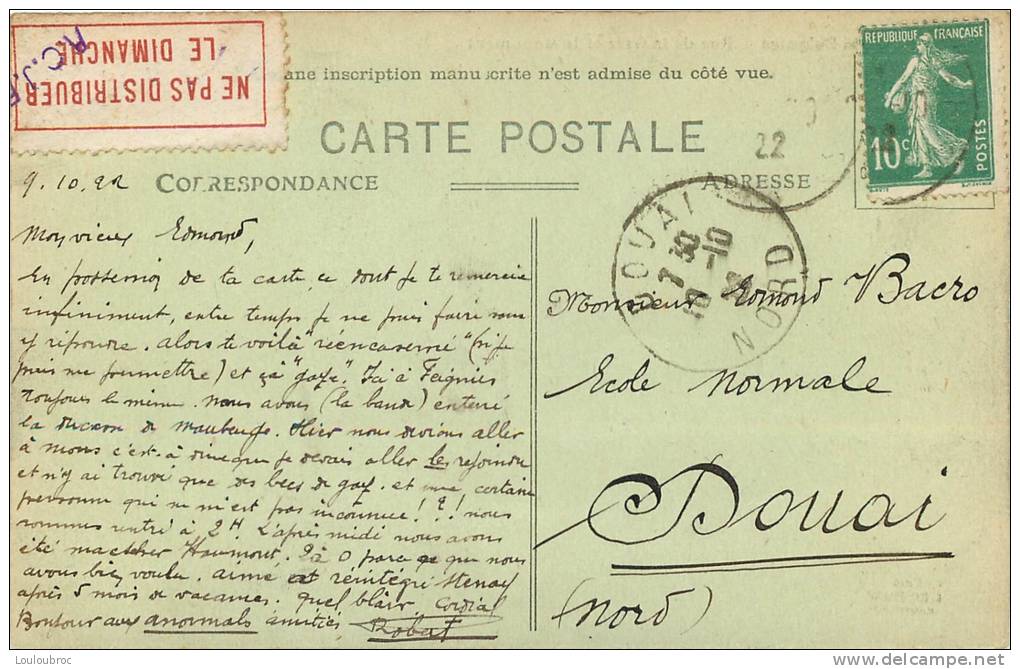 NE PAS DISTRIBUER
LE DIMANCHE
R.C.J.
ane inscription manuscrite n'est admise du côté vue.
CARTE POSTALE
RÉPUBLIQUE FRANÇAISE
10c
POSTES
22
9.10.22
CORRESPONDANCE
ADRESSE
DOUAI
NORD
Mon vieux Edmond,
En possession de ta carte, ce dont je te remercie
infiniment, entre temps je ne puis faire sans
y répondre. Alors te voilà "réencaserné" (si je
puis me permettre) et ça "gaze". Ici à Feignies
toujours le même. nous avons (la bande) enterré
la ducasse de Maubeuge. Hier nous devions aller
à Mons c'est-à-dire que je devais aller les rejoindre
et n'y ai trouvé que des becs de gaz. et une certaine
personne qui ne m'est pas inconnue! ?! nous
sommes rentré à 2H. L'après midi nous avons
été matcher Haumont, 2 à 0, parce que nous
avons bien voulu. aimé est réintégré Stenay
après 5 mois de vacances. quel blair. Cordial
Bonjour aux anormals amitiés Robert
Monsieur Edmond Bacro
Ecole Normale
Douai
(Nord)
© Louloubroc
http://www.delcampe.net